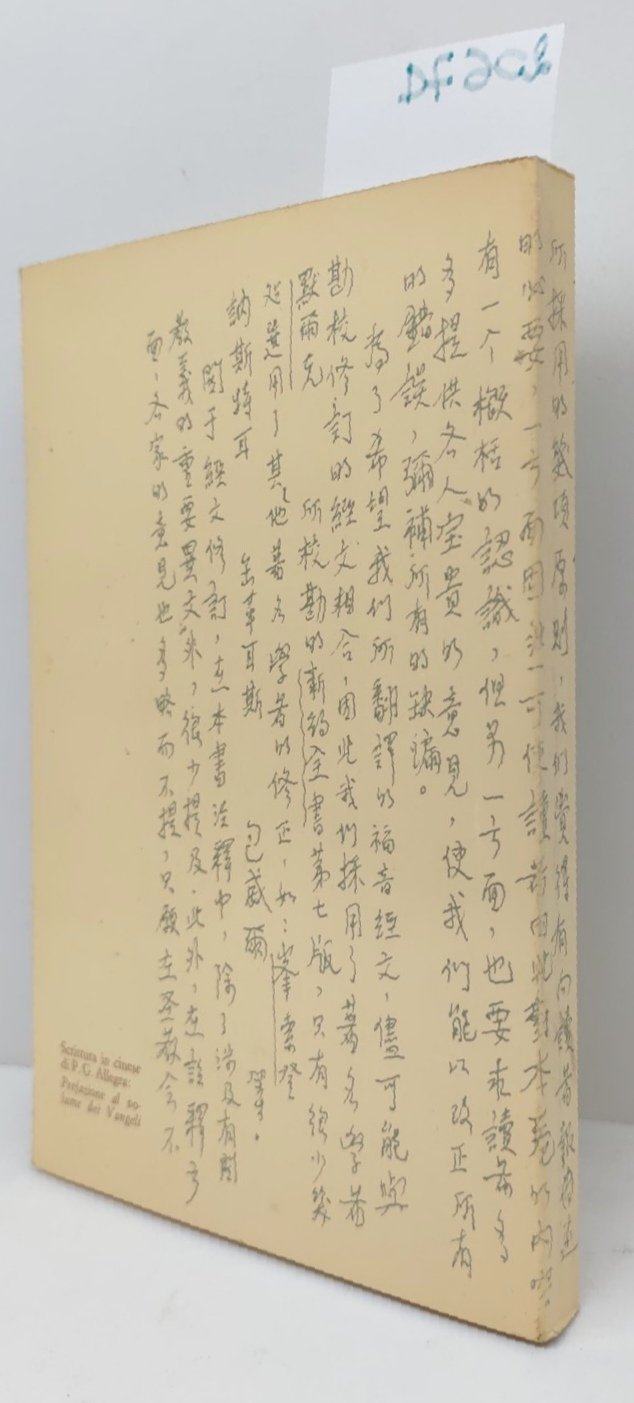 所採用的幾項原則，我們覺得有向讀者報告
的必要，一方面因此可使讀者由此對本書的內容
有一个概括的認識，但另一方面，也要求讀者多
多提供各人宝貴的意見，使我們能以改正所有
的錯誤，彌補所有的缺漏。
為了希望我們所翻譯的福音經文，儘可能與
勘校修訂的經文相合，因此我們採用了著名學者
默爾克 所校勘的新約全書第七版，只有很少幾
处選用了其他著名學者的修正，如：
訥斯特耳 包威爾 等。
関于經文修訂，在本書注釋中，除了涉及有関
教義的重要異文外，很少提及．此外，在註釋方
面，各家的意見也多略而不提，只願在圣教会不
Scrittura in cinese
di P. G. Allegra:
Prefazione al vo-
lume dei Vangeli
20674